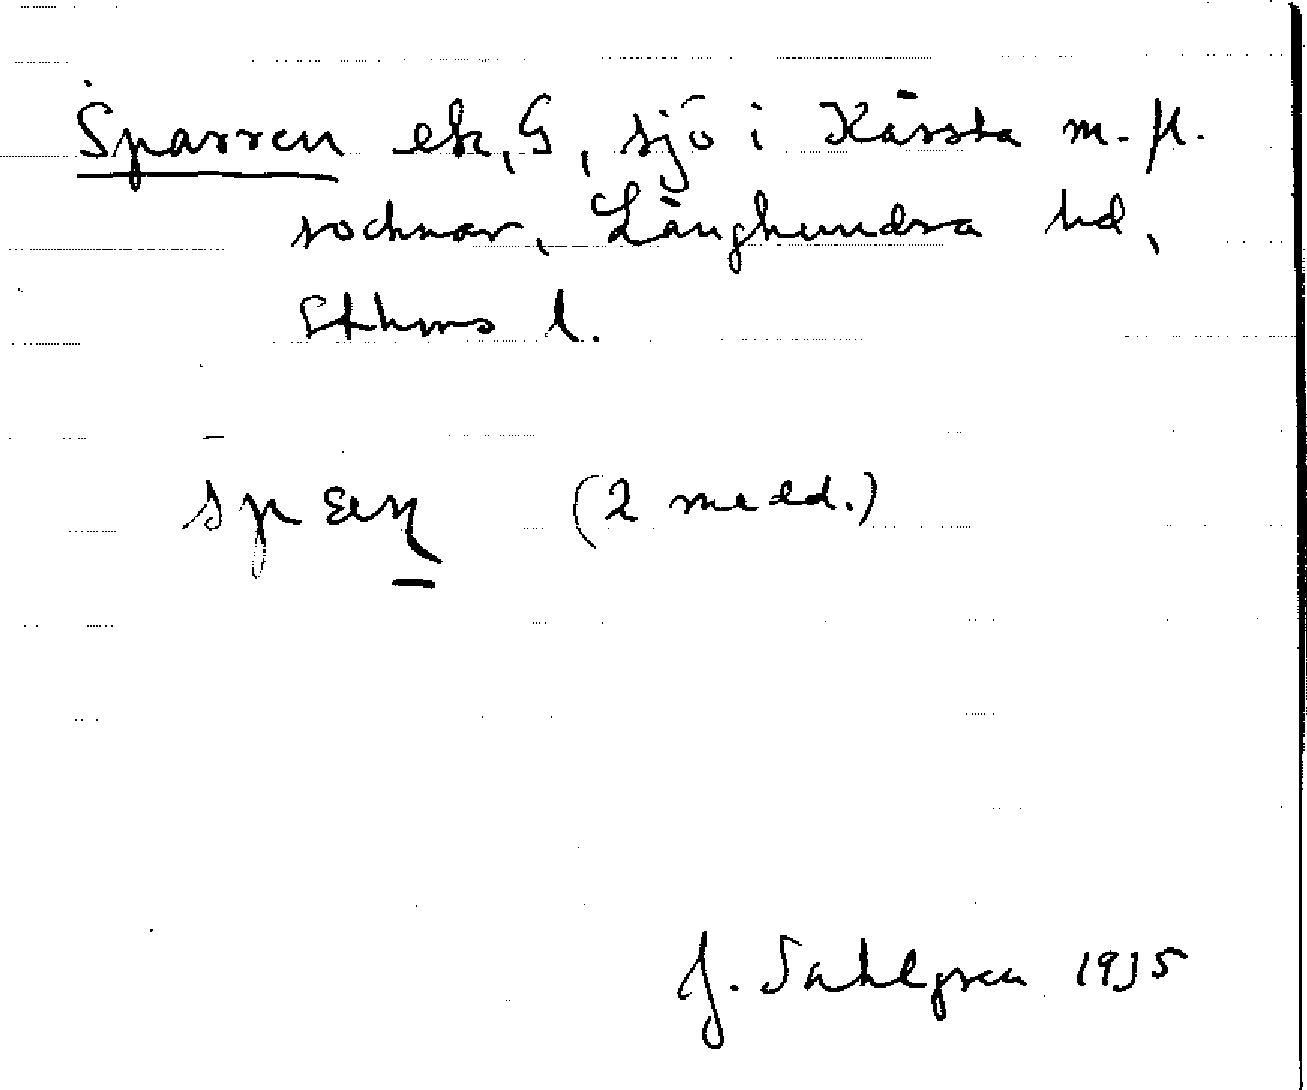 Sparren ek, G, sjö i Kårsta m. fl.
socknar, Långhundra hd,
Sthms l.
(2 medd.)
J. Sahlgren 1935